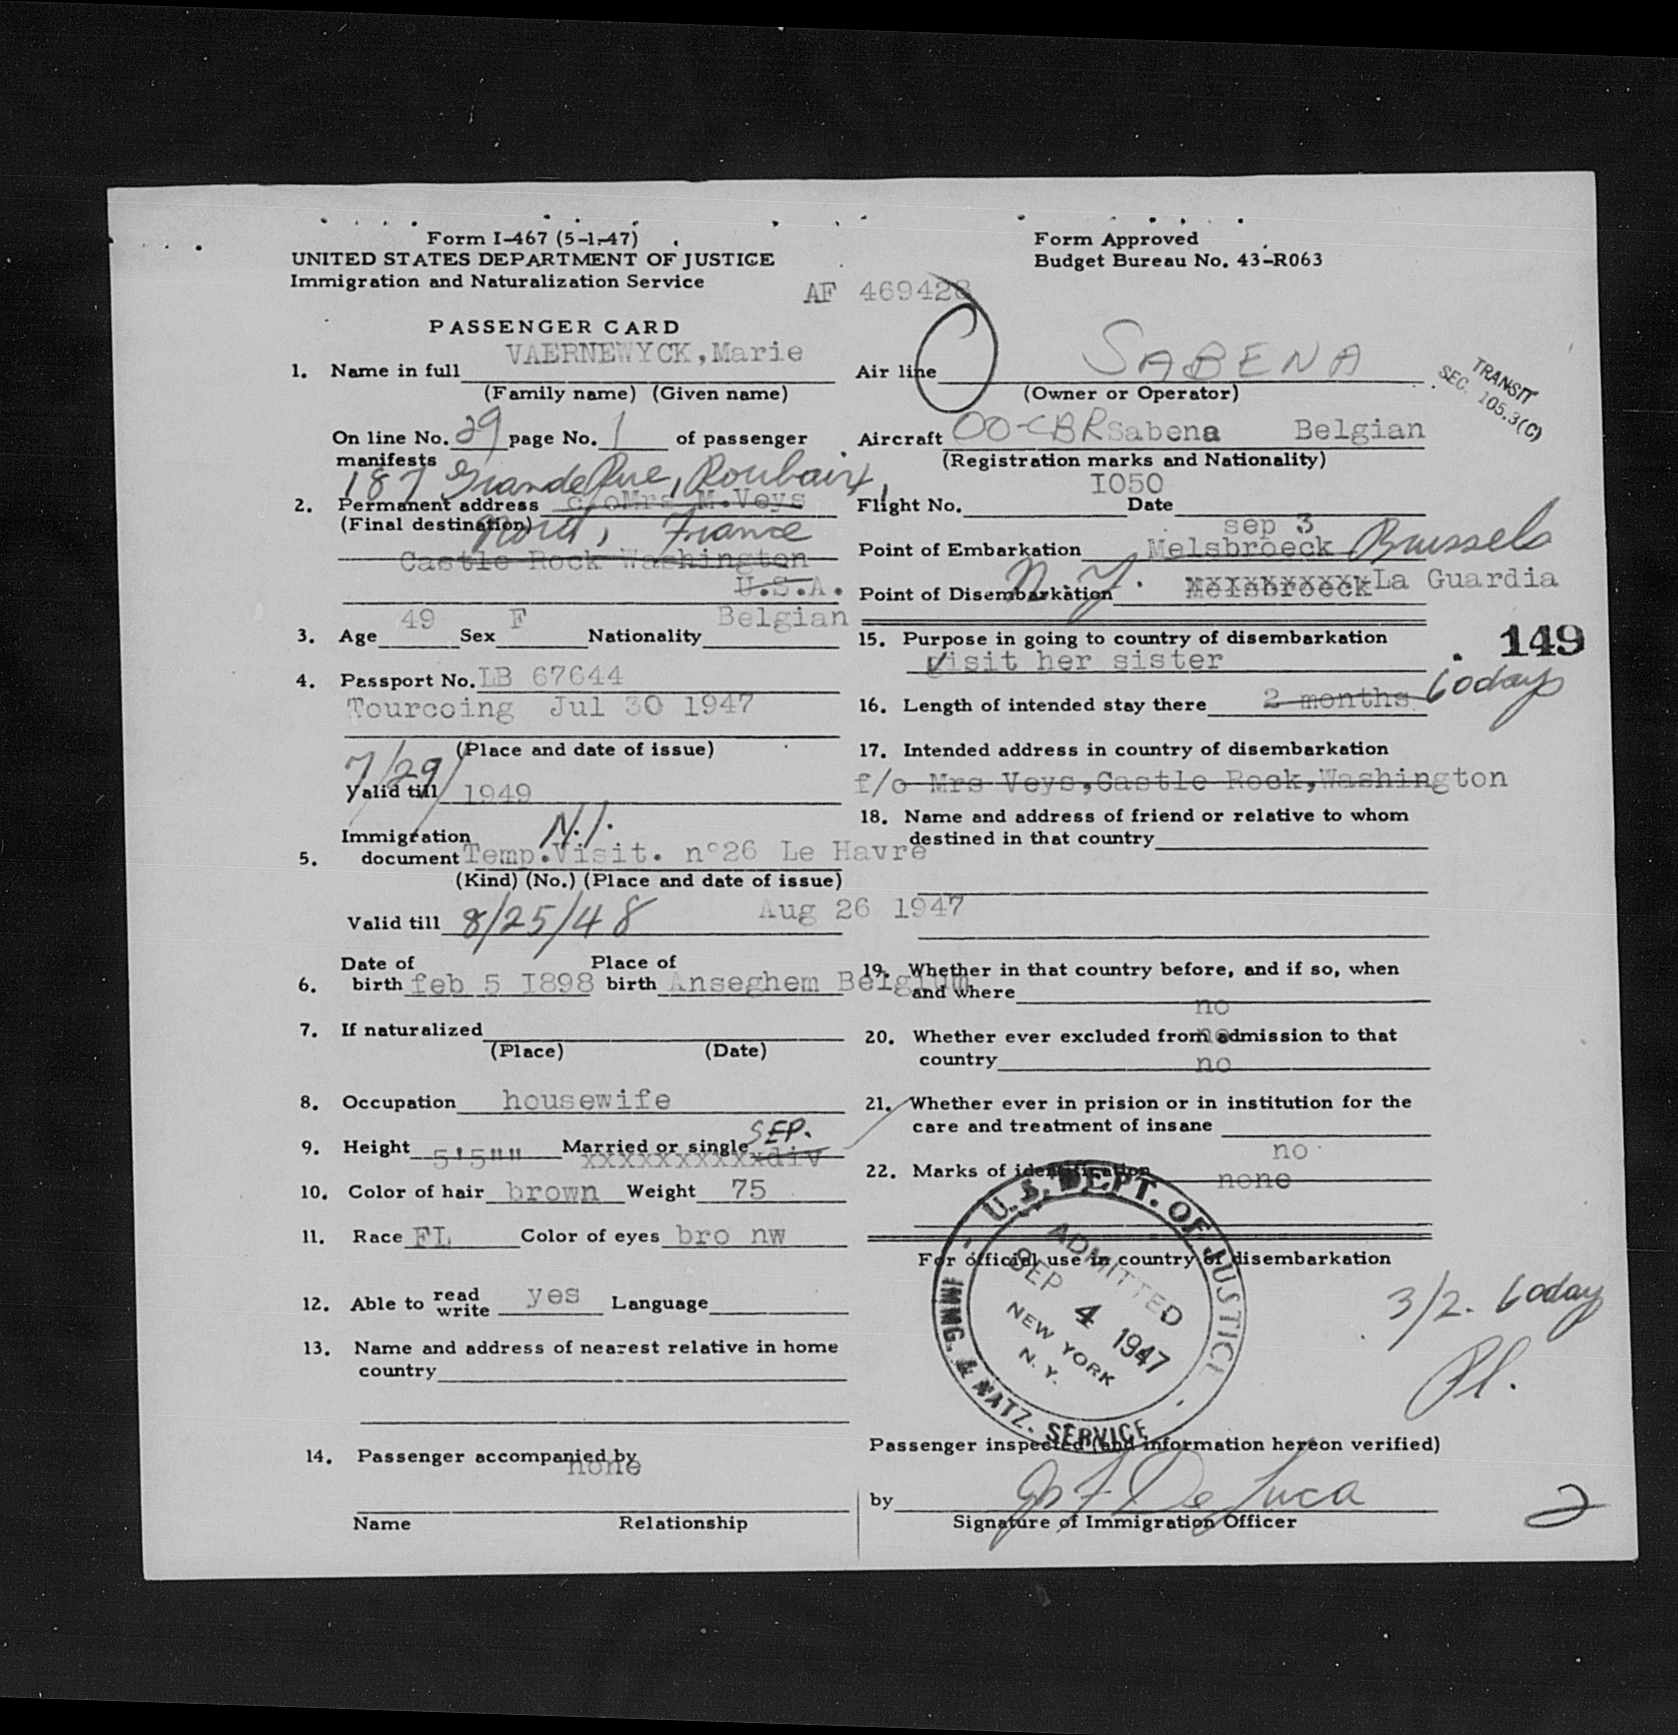 Form I-467 (5-1-47)
UNITED STATES DEPARTMENT OF JUSTICE
Immigration and Naturalization Service
Form Approved
Budget Bureau No. 43-R063
AF 469428
PASSENGER CARD
VAERNEWYCK,Marie
1. Name in full
(Family name) (Given name)
On line No. 29 page No. 1 of passenger
manifests
187 Grande Rue, Roubaix,
2. Permanent address c/oMrs M.Veys
(Final destination) Nord, France
Castle Rock Washington
U.S.A.
3. Age 49 Sex F Nationality Belgian
4. Passport No. LB 67644
Tourcoing Jul 30 1947
(Place and date of issue)
7/29/
Valid till 1949
N.I.
Immigration
5. document Temp.Visit. n°26 Le Havre
(Kind) (No.) (Place and date of issue)
Aug 26 1947
Valid till 8/25/48
Date of Place of
6. birth feb 5 I898 birth Anseghem Belgium
7. If naturalized
(Place) (Date)
8. Occupation housewife
9. Height 5'5"" Married or single SEP.
xxxxxxxxxxxdiv
10. Color of hair brown Weight 75
11. Race FL Color of eyes bro nw
12. Able to read write yes Language
13. Name and address of nearest relative in home
country
14. Passenger accompanied by
none
Name Relationship
Air line SABENA
(Owner or Operator)
TRANSIT
SEC. 105.3(C)
Aircraft OO-CBR Sabena Belgian
(Registration marks and Nationality)
I050
Flight No. Date
sep 3
Point of Embarkation Melsbroeck Brussels
Point of Disembarkation N.Y. Melsbroeck La Guardia
15. Purpose in going to country of disembarkation
visit her sister
149
16. Length of intended stay there 2 months 60 days
17. Intended address in country of disembarkation
f/o Mrs Veys,Castle Rock,Washington
18. Name and address of friend or relative to whom
destined in that country
19. Whether in that country before, and if so, when
and where
no
20. Whether ever excluded from admission to that
no
country
no
21. Whether ever in prision or in institution for the
care and treatment of insane
no
22. Marks of identification
none
For official use in country of disembarkation
U.S. DEPT. OF JUSTICE
IMMG. & NATZ. SERVICE
ADMITTED
SEP 4 1947
NEW YORK
N. Y.
3/2. 60 days
Passenger inspected (and information hereon verified)
by De Luca
Signature of Immigration Officer
2